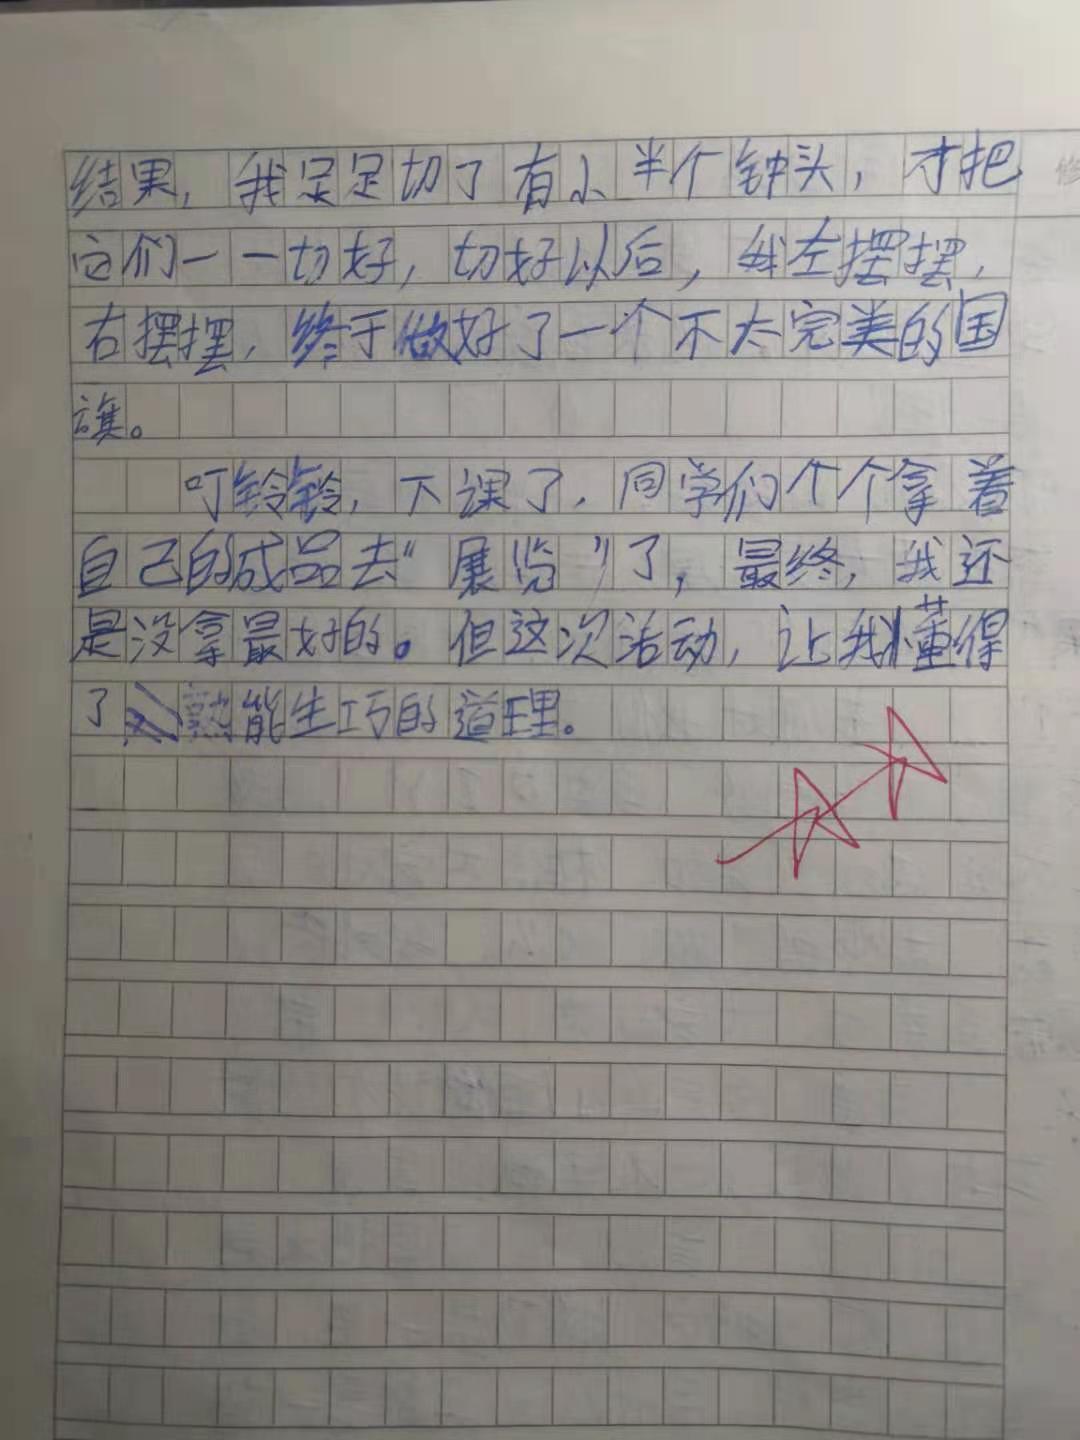 结果，我足足切了有小半个钟头，才把
它们一一切好，切好以后，我左摆摆，
右摆摆，终于做好了一个不太完美的国
旗。
叮铃铃，下课了，同学们个个拿着
自己的成品去“展览”了，最终，我还
是没拿最好的。但这次活动，让我懂得
了熟能生巧的道理。